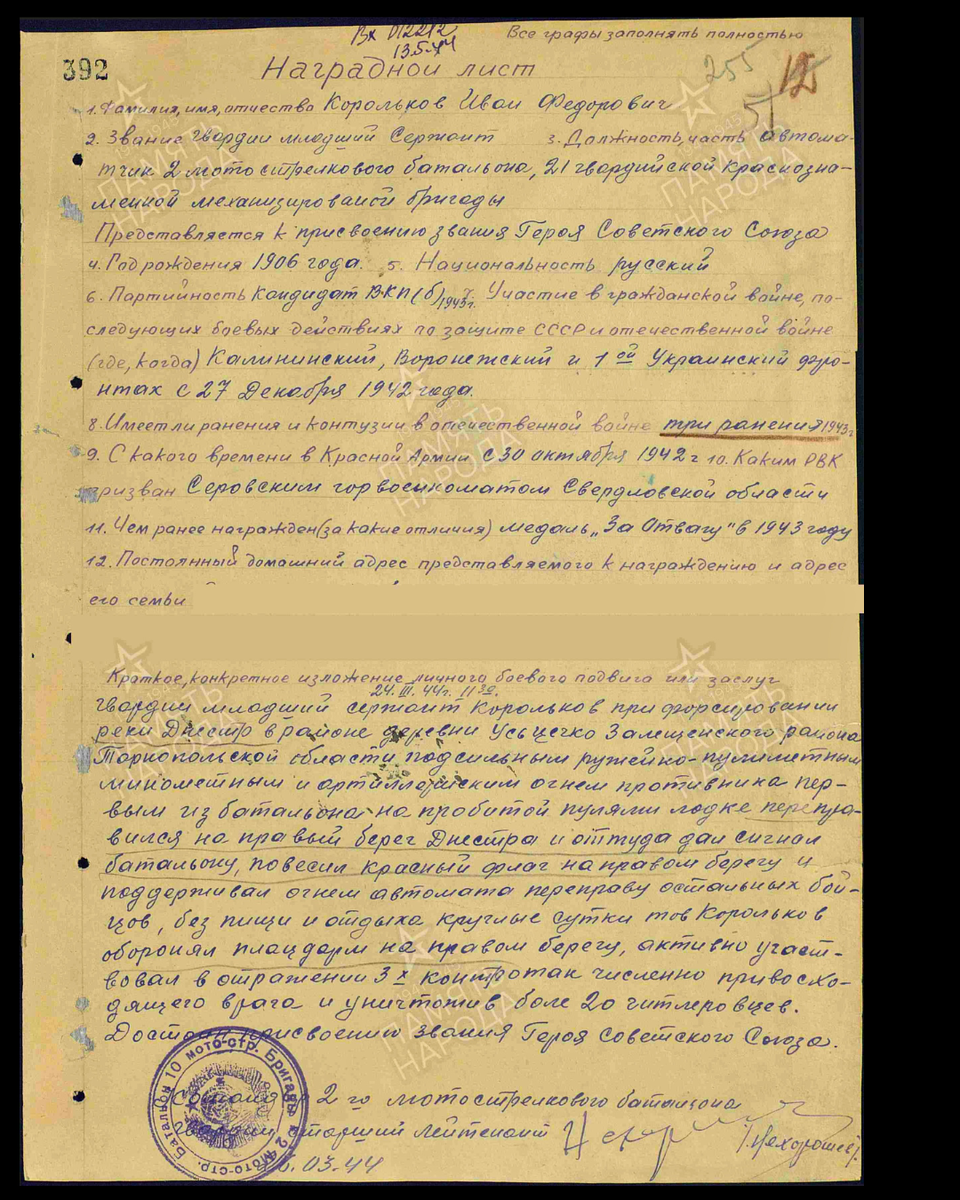 Вх 012212
13.5.44
Все графы заполнять полностью
392
255
Наградной лист
51
1. Фамилия, имя, отчество Корольков Иван Федорович
2. Звание гвардии младший Сержант 3. Должность, часть автома-
тчик 2 мотострелкового батальона, 21 гвардийской Краснозна-
менной механизированой бригады
Представляется к присвоению звания Героя Советского Союза
4. Год рождения 1906 года. 5. Национальность русский
6. Партийность Кандидат ВКП(б) 1943г. 7. Участие в гражданской войне, по-
следующих боевых действиях по защите СССР и отечественной войне
(где, когда) Калининский, Воронежский и 1ой Украинский фро-
нтах с 27 Декабря 1942 года.
8. Имеет ли ранения и контузии в отечественной войне три ранения 1943г
9. С какого времени в Красной Армии с 30 октября 1942 г 10. Каким РВК
призван Серовским горвоенкоматом Свердловской области
11. Чем ранее награжден (за какие отличия) медаль „За Отвагу" в 1943 году
12. Постоянный домашний адрес представляемого к награждению и адрес
его семьи
Краткое, конкретное изложение личного боевого подвига или заслуг
24.III.44г. 11 30.
гвардии младший сержант Корольков при форсировании
реки Днестр в районе деревни Усьцечко Залещенского района
Тарнопольской области под сильным ружейно-пулиметным
минометным и артиллерийским огнем противника пер-
вым из батальона на пробитой пулями лодке перепра-
вился на правый берег Днестра и оттуда дал сигнал
батальону, повесил красный флаг на правом берегу и
поддерживал огнем автомата переправу остальных бой-
цов, без пищи и отдыха круглые сутки тов Корольков
оборонял плацдарм на правом берегу, активно участ-
вовал в отражении 3х контратак численно привосхо-
дящего врага и уничтожив боле 20 гитлеровцев.
Достоин присвоению звания Героя Советского Союза.
2 го мотострелкового баталиона
старший лейтенант /Нехорошев/.
03.44
Батальон 10 мото-стр. Бригады